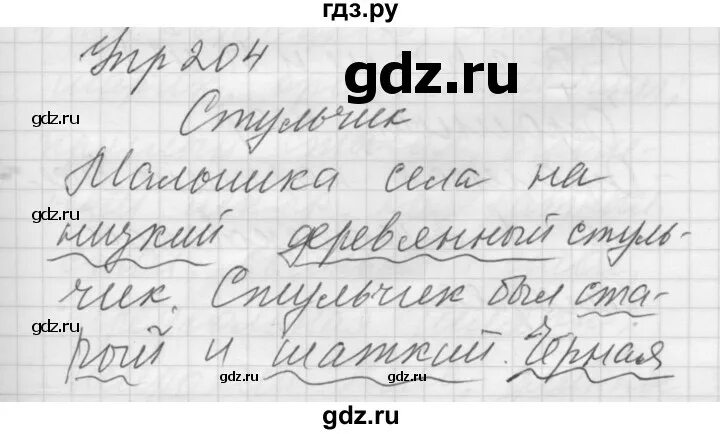 гдз.ру
Упр 204
gdz.ru
gdz.ru
gdz.ru
Стульчик
Малышка села на
gdz.ru
низкий деревянный стуль-
чик. Стульчик был ста-
рый и шаткий. Чёрная
gdz.ru
gdz.ru
gdz.ru